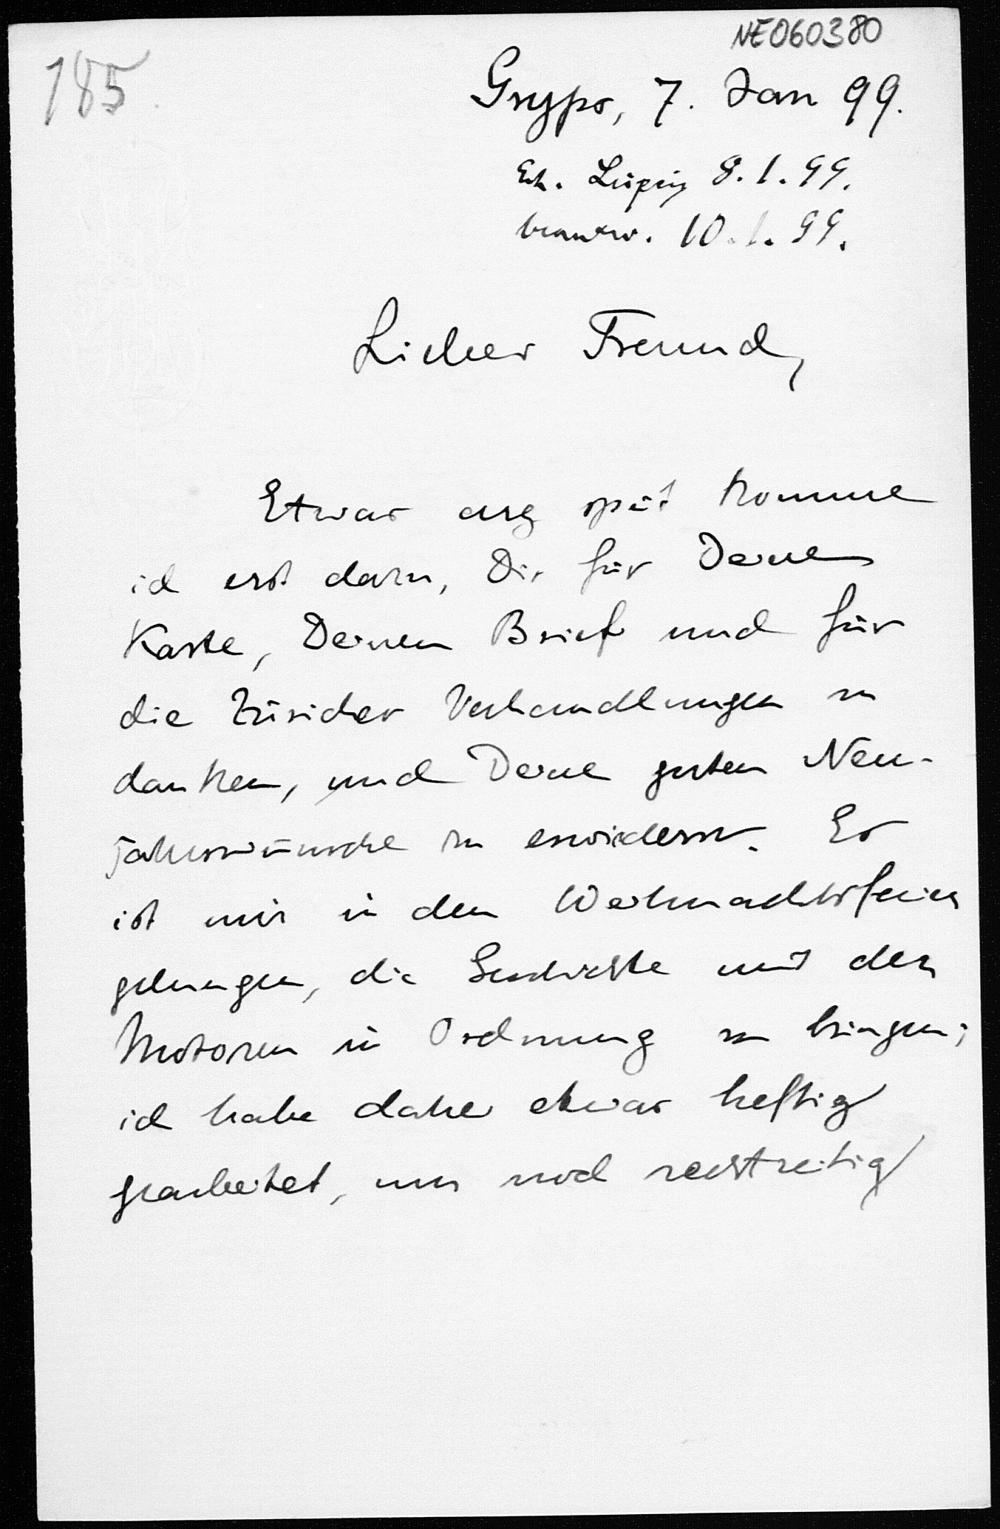 NE060380
185
Gryps, 7. Jan 99.
Erh. Leipzig 8.1.99.
beantw. 10.1.99.
Lieber Freund,
Etwas arg spät komme
ich erst dazu, Dir für Deine
Karte, Deinen Brief und für
die Züricher Verhandlungen zu
danken, und Deine guten Neu-
jahrswünsche zu erwidern. Es
ist mir in den Weihnachtsferien
gelungen, die Geschichte mit den
Motoren in Ordnung zu bringen;
ich habe daher etwas heftig
gearbeitet, um noch rechtzeitig